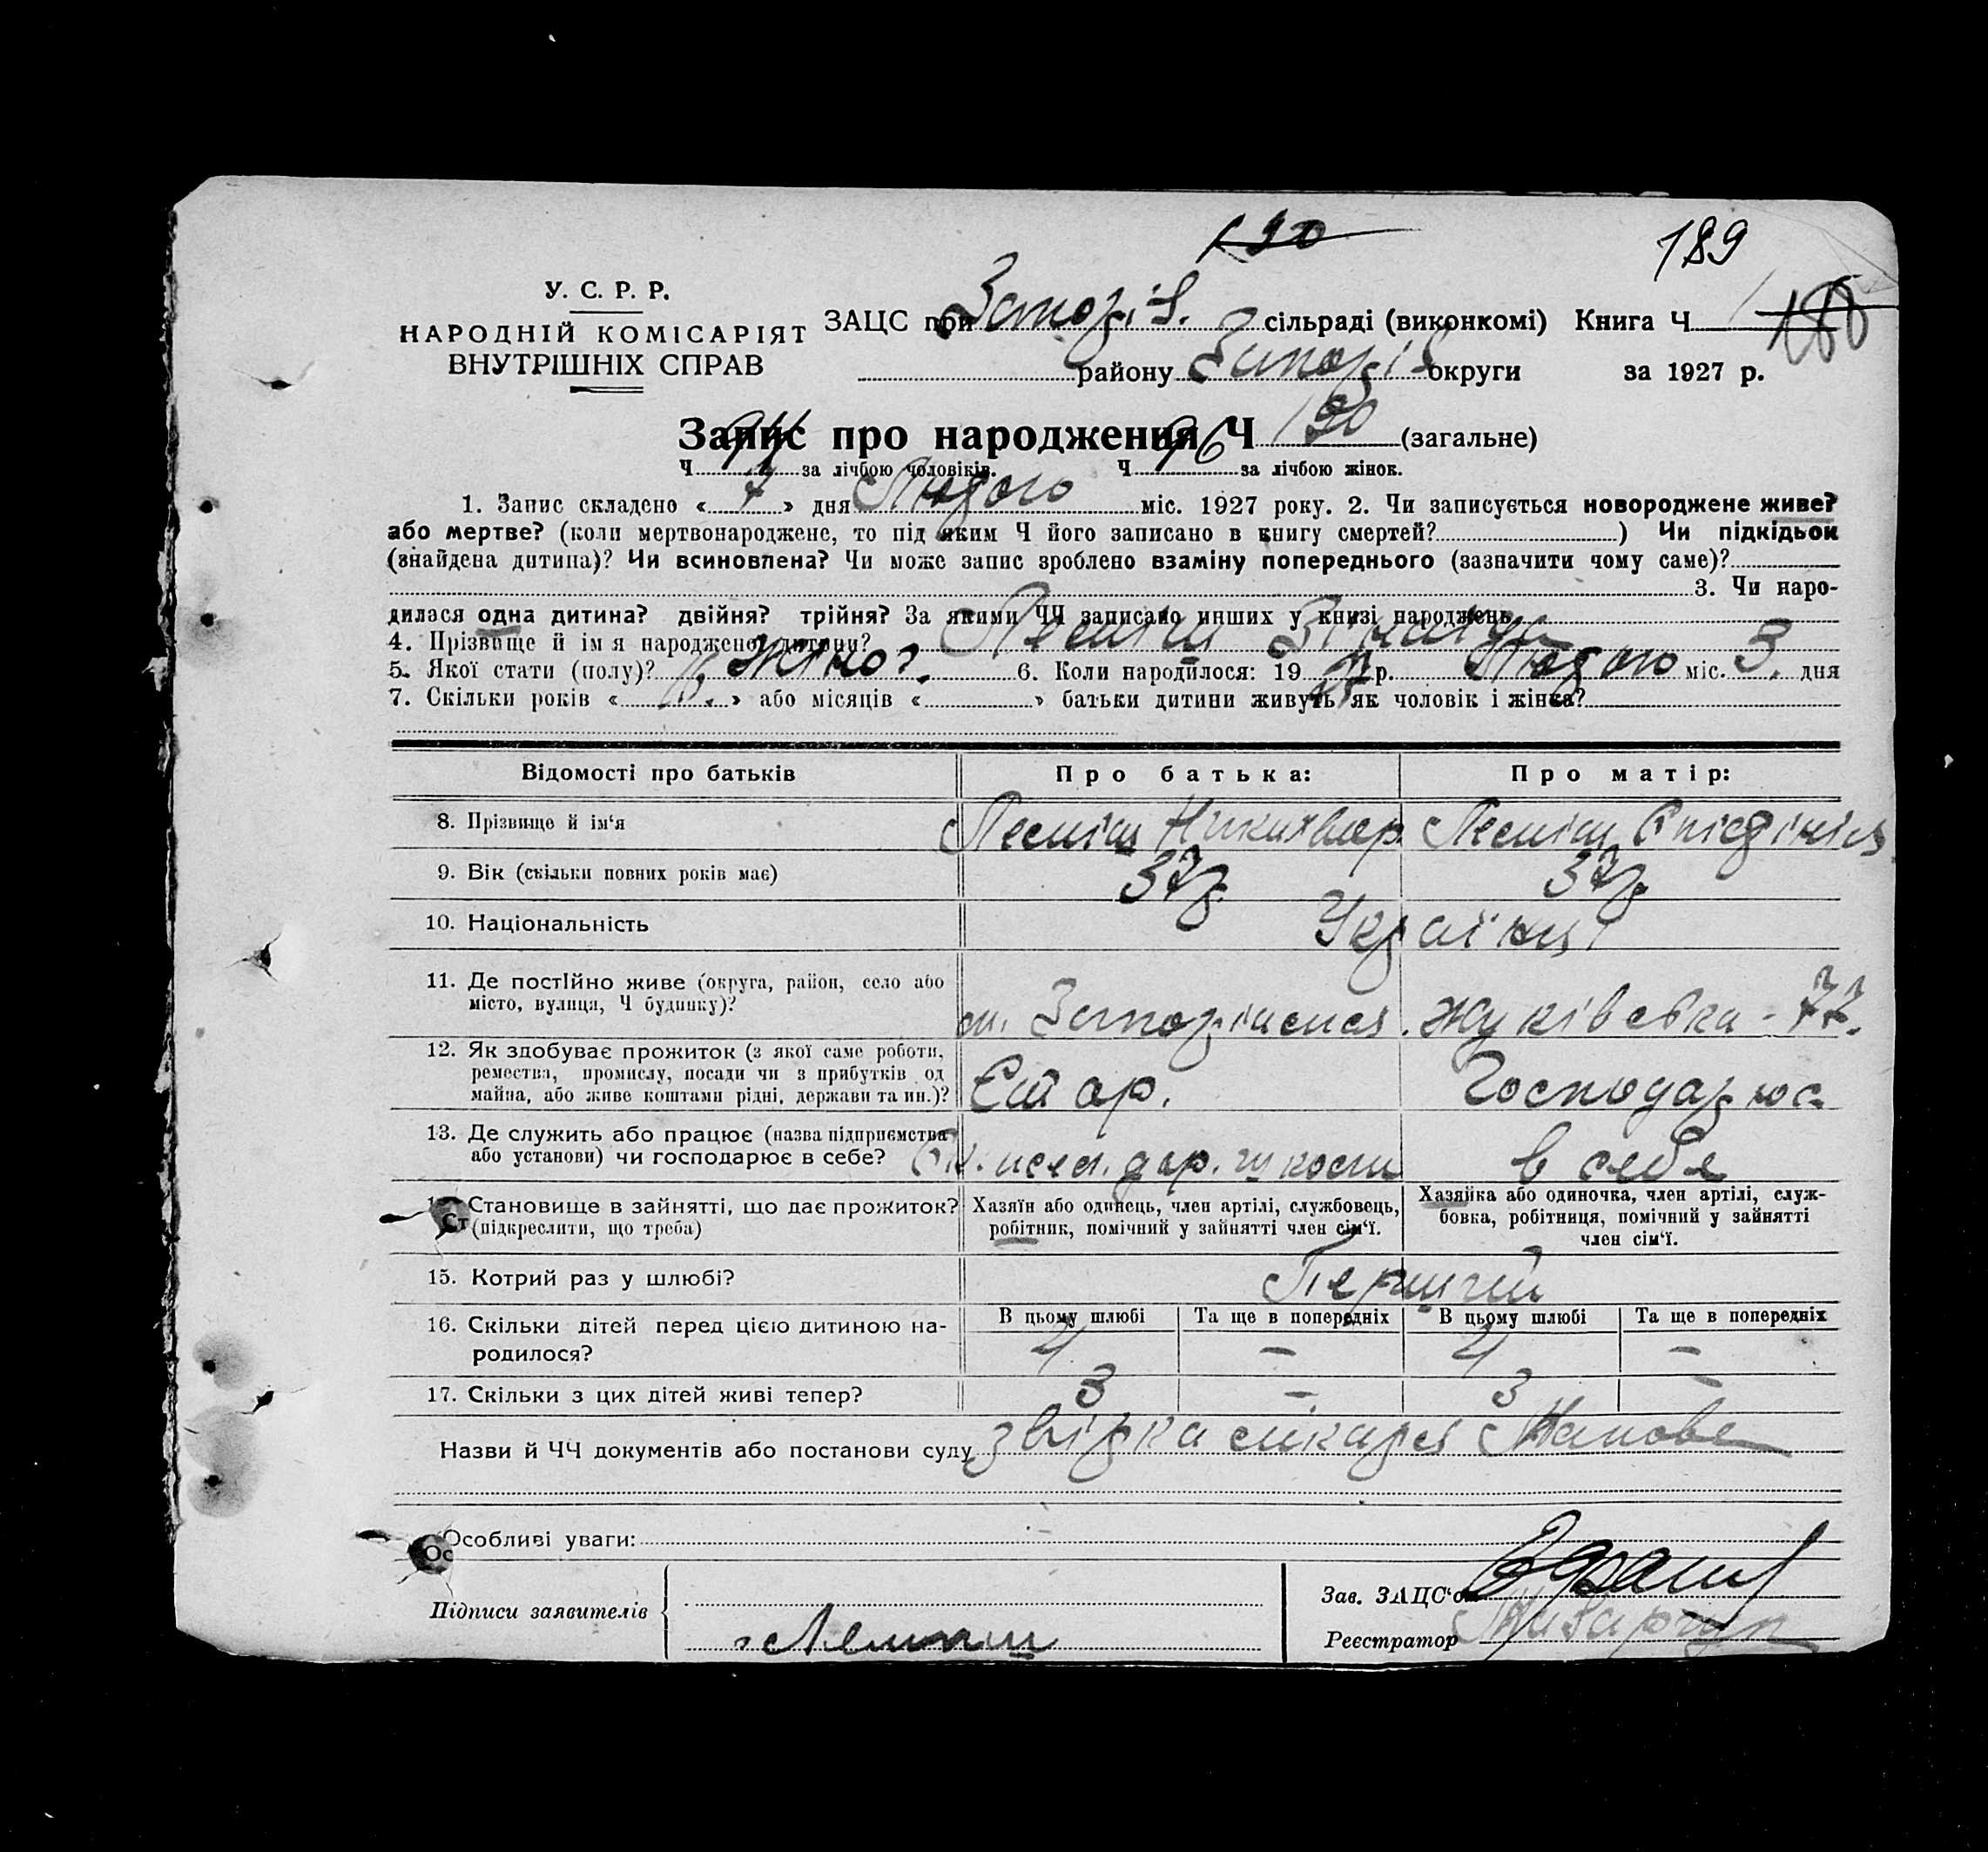 190
189
У. С. Р. Р.
НАРОДНІЙ КОМІСАРІЯТ
ВНУТРІШНІХ СПРАВ
ЗАЦС при Запоріз. сільраді (виконкомі) Книга Ч
району Запоріз округи за 1927 р.
Запис про народження Ч 190 (загальне)
Ч 94 за лічбою чоловіків. Ч 96 за лічбою жінок.
1. Запис складено « 7 » дня Лютого міс. 1927 року. 2. Чи записується новороджене живе?
або мертве? (коли мертвонароджене, то під яким Ч його записано в книгу смертей? ) Чи підкідьок
(знайдена дитина)? Чи всиновлена? Чи може запис зроблено взаміну попереднього (зазначити чому саме)?
3. Чи наро-
дилася одна дитина? двійня? трійня? За якими ЧЧ записано инших у книзі народжень
4. Прізвище й ім я народженої дитини? Лемпіш Зінаїда
5. Якої стати (полу)? жіноч. 6. Коли народилося: 19 27 р. Лютого міс. 3. дня
7. Скільки років « 16. » або місяців « » батьки дитини живуть як чоловік і жінка?
Відомості про батьків Про батька: Про матір:
8. Прізвище й ім‘я Лемпіш Никихвор Лемпіш
9. Вік (скільки повних років має) 37 р. 37 р.
10. Національність Українці
11. Де постійно живе (округа, район, село або
місто, вулиця, Ч будинку)? м. Запоріжжя. Жуківська - 77.
12. Як здобуває прожиток (з якої саме роботи,
ремества, промислу, посади чи з прибутків од
майна, або живе коштами рідні, держави та ин.)? Господарює
13. Де служить або працює (назва підприємства
або установи) чи господарює в себе? в себе
Становище в зайнятті, що дає прожиток?
(підкреслити, що треба)
Хазяїн або одинець, член артілі, службовець,
робітник, помічний у зайнятті член сім‘ї.
Хазяйка або одиночка, член артілі, служ-
бовка, робітниця, помічний у зайнятті
член сім‘ї.
15. Котрий раз у шлюбі? Перший
16. Скільки дітей перед цією дитиною на-
родилося?
В цьому шлюбі Та ще в попередніх В цьому шлюбі Та ще в попередніх
4 – 4 –
17. Скільки з цих дітей живі тепер? 3 – 3 –
Назви й ЧЧ документів або постанови суду довідка лікаря
Особливі уваги:
Підписи заявителів
Лемпіш
Зав. ЗАЦС‘ом
Реєстратор